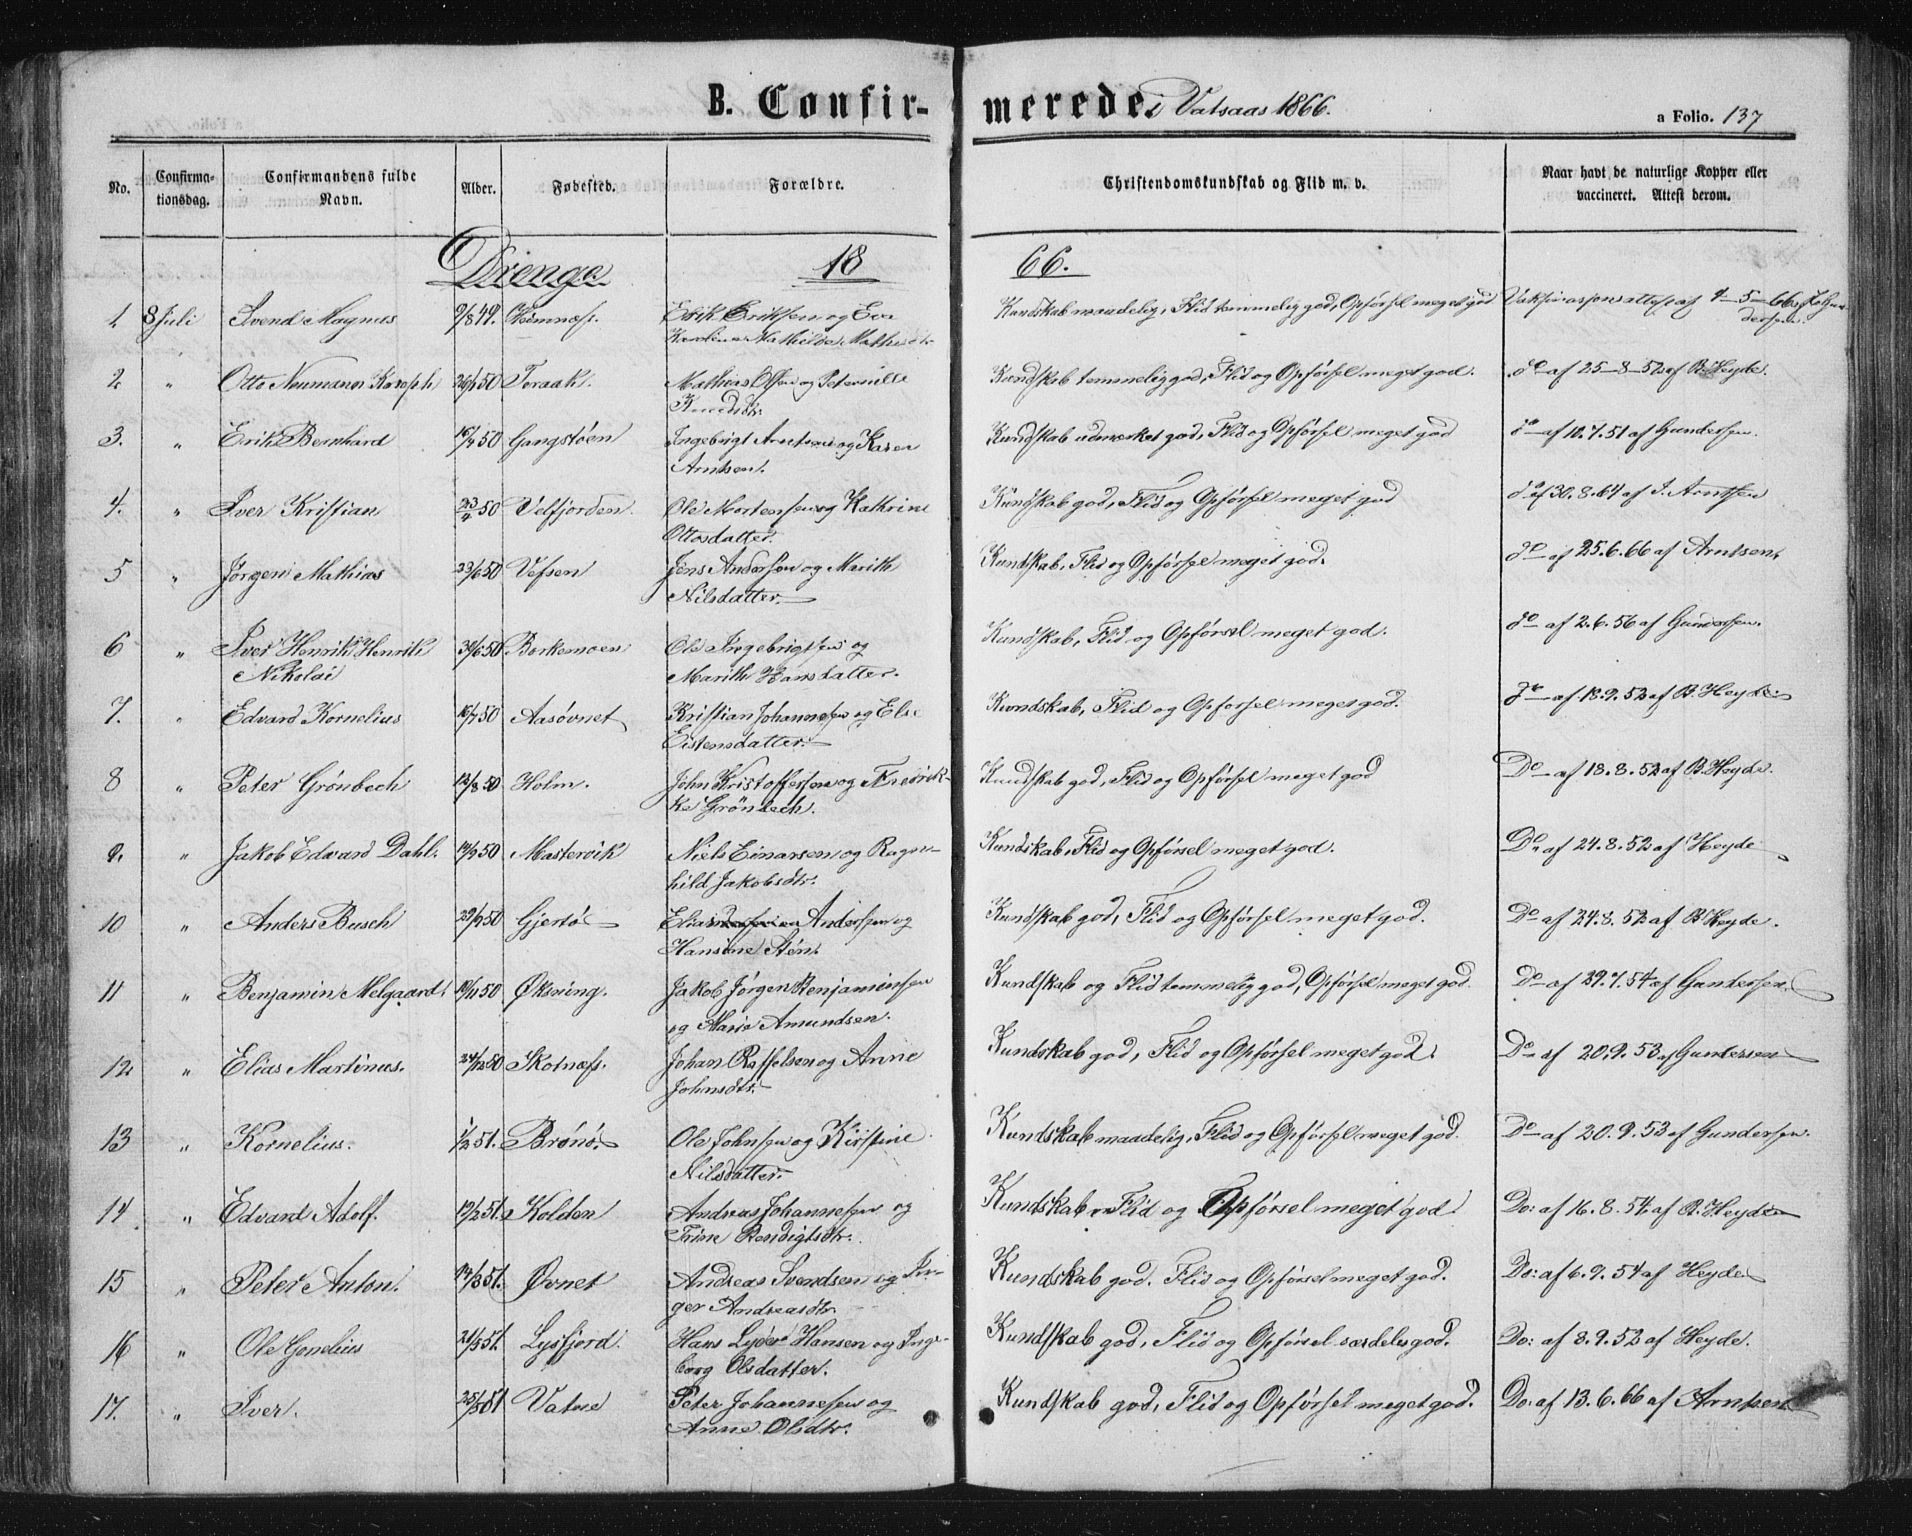 B. Confirmerede i Vatsaas 1866.
a Folio. 137
No. Confirmationsdag. Confirmandens fulde Navn. Alder. Fødested. Forældre. Christendomskundskab og Flid m. v. Naar havt de naturlige Kopper eller vaccineret. Attest derom.
Drenge 18 66.
1. 8 Juli Svend Magnus 9/8 49. Hemnæs. Erik Eriksen og Eva Kundskab maadelig, Flid temmelig god, Opførsel meget god Vaksinasjonsattest af 4-5-66 af J. Gun-
Karoline Mathilde dersen.
2 " Otto Neumann Kaseph 26/1 50 Foraak. Mathias Olsen og Peternille Kundskab temmelig god, Flid og Opførsel meget god. do af 25-8-52 af B. Heyde.
Knudsdtr.
3. " Erik Bernhard 16/2 50 Gangstøen Ingebrigt Arntsen og Karen Kundskab udmærket god, Flid og Opførsel meget god do af 10.7.51 af Gundersen.
Arntsen.
4. " Iver Kristian 23/4 50 Velfjorden. Ole Mortensen og Kathrine Kundskab god, Flid og Opførsel meget god do af 30.8.64 af I. Arntsen
Ottosdatter.
5 " Jørgen Mathias 23/6 50 Vefsen Jens Andersen og Marith Kundskab, Flid og Opførsel meget god. do af 25.6.66 af Arntsen.
Nilsdatter.
6 " Iver Henrik Henrik 30/6 50 Borkemoen Ole Ingebrigtsen og Kundskab, Flid og Opførsel meget god. do af 2.6.56 af Gundersen.
Nikolai Marith Hansdatter.
7. " Edvard Kornelius 16/7 50 Aasøvnet Kristian Johannesen og Else Kundskab, Flid og Opførsel meget god. do af 18.9.52 af B. Heyde.
Eistensdatter.
8 " Peter Grönbech 12/8 50 Holm. John Kristoffersen og Fredrik- Kundskab god, Flid og Opførsel meget god Do af 18.8.52 af B. Heyde.
ke Grönbech.
9. " Jakob Edvard Dahl. 14/9 50 Mastervik Niels Einarsen og Ragn- Kundskab, Flid og Opførsel meget god. Do af 24.8.52 af Heyde
hild Jakobsdtr.
10 " Anders Busch 29/9 50 Gjertø Elias Andersen og Kundskab god, Flid og Opførsel meget god. Do af 24.8.52 af B. Heyde.
Hansine Stén.
11 " Benjamin Melgaard. 10/11 50 Øksning. Jakob Jørgen Benjaminsen Kundskab og Flid temmelig god, Opførsel meget god. Do af 29.7.54 af Gundersen.
og Marie Amundsen.
12 " Elias Martinus. 24/12 50 Skotnæs. Johan Raffelsen og Anne Kundskab god, Flid og Opførsel meget god. Do af 20.9.53 af Gundersen
Johnsdtr.
13 " Kornelius. 1/2 51. Brønø Ole Johnsen og Kirstine Kundskab maadelig, Flid og Opførsel meget god. Do af 20.9.53 af Gundersen.
Nilsdatter.
14 " Edvard Adolf. 19/2 51. Kolden Andreas Johannesen og Kundskab, Flid og Opførsel meget god Do: af 16.8.54 af B. Heyde
Trine Bendigtsdtr.
15 " Peter Anton. 14/3 51. Øvnet Andreas Svendsen og In- Kundskab god. Flid og Opførsel meget god. Do: af 6.9.54 af Heyde
ger Andreasdtr.
16 " Ole Gonelius 21/3 51. Lysfjord. Hans Lyder Hansen og Inge- Kundskab god, Flid og Opførsel særdeles god. Do: af 8.9.52 af Heyde.
borg Olsdatter.
17. " Iver. 25/3 51 Vatne Peter Johannesen og Kundskab god, Flid og Opførsel meget god. Do: af 13.6.66 af Arntsen
Anne Olsdtr.